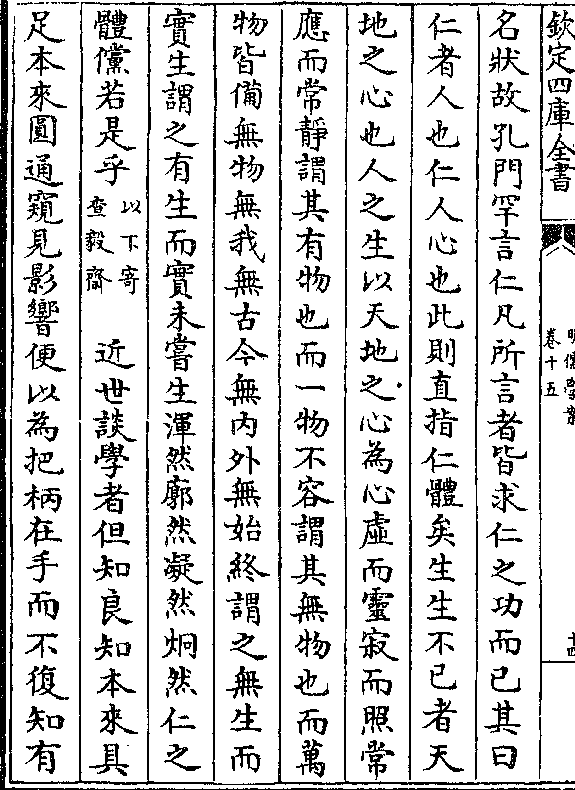 欽定四庫全書
明儒學案
卷十五
名狀故孔門罕言仁凡所言者皆求仁之功而已其曰
仁者人也仁人心也此則直指仁體矣生生不已者天
地之心也人之生以天地之心為心虛而靈寂而照常
應而常靜謂其有物也而一物不容謂其無物也而萬
物皆備無物無我無古今無內外無始終謂之無生而
實生謂之有生而實未嘗生渾然廓然凝然烱然仁之
體儻若是乎以下寄查毅齋 近世談學者但知良知本來具
足本來圓通窺見影響便以為把柄在手而不復知有